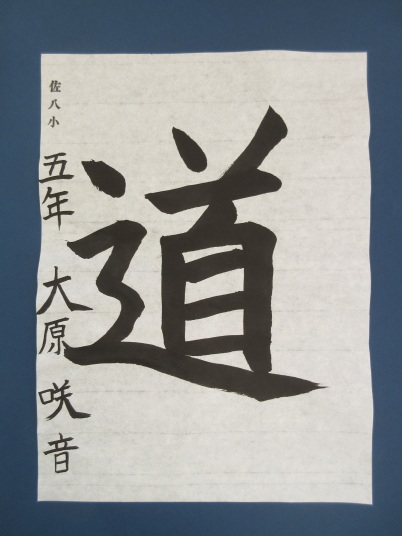 道
佐八小
五年 大原咲音